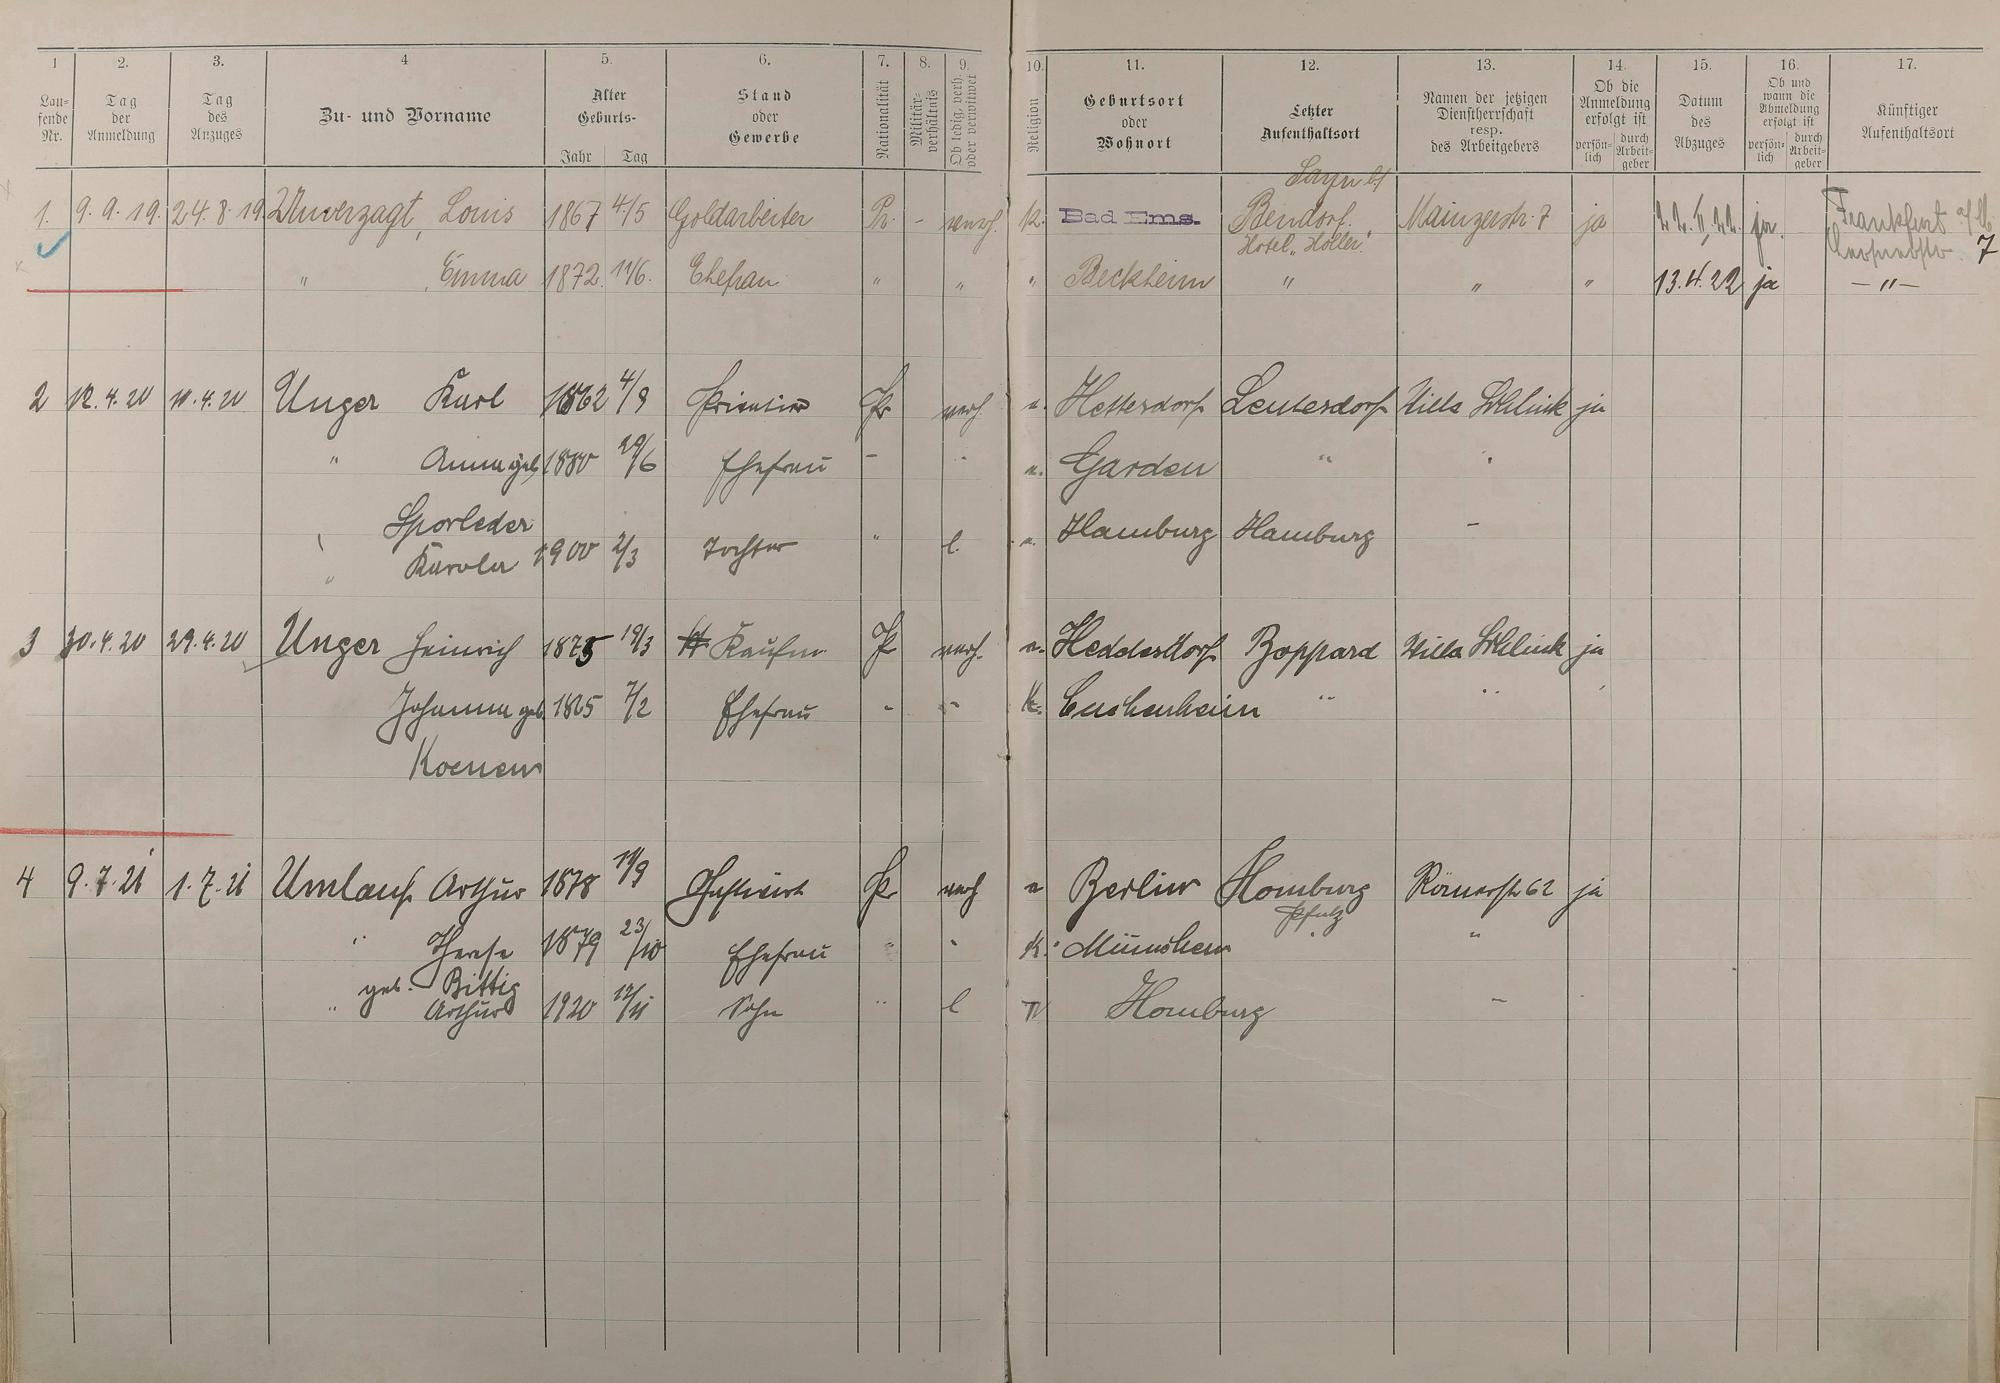 1 2. 3. 4 5. 6. 7. 8. 9. 10. 11. 12. 13. 14. 15. 16. 17.
Lau-
fende
Nr.
Tag
der
Anmeldung
Tag
des
Anzuges
Zu- und Vorname
Alter
Geburts-
Jahr Tag
Stand
oder
Gewerbe
Nationalität
Militär-
verhältnis
Ob ledig, verh.
oder verwitwet
Religion
Geburtsort
oder
Wohnort
Letzter
Aufenthaltsort
Namen der jetzigen
Dienstherrschaft
resp.
des Arbeitgebers
Ob die
Anmeldung
erfolgt ist
persön-
lich
durch
Arbeit-
geber
Datum
des
Abzuges
Ob und
wann die
Abmeldung
erfolgt ist
persön-
lich
durch
Arbeit-
geber
Künftiger
Aufenthaltsort
Sayn b/
1. 9.9.19. 24.8.19 Unverzagt, Louis 1867 4/5 Goldarbeiter Pr. - verh. K. Bad Ems. Bendorf. Mainzerstr. 7 ja 22.II.22. ja. Frankfurt a/M.
Hotel „Höller“. 7
" Emma 1872. 11/6. Ehefrau " " " Beckheim " " " 13.4.22 ja — " —
2 12.4.20 11.4.20 Unger Karl 1862 4/9 Privatier Pr verh. e. Hettersdorf Leutesdorf Villa Schlink ja
" Anna geb. 1880 29/6 Ehefrau - " e. Garden " "
Sporleder
" Karola 1900 2/3 Tochter " l. e. Hamburg Hamburg -
3 30.4.20 29.4.20 Unger Heinrich 1875 19/3 Kaufm. Pr verh. e. Heddesdorf Boppard Villa Schlink ja
Johanna geb. 1865 7/2 Ehefrau - - K. Cuchenheim " " "
Koenen
4 9.7.21 1.7.21 Umlauf Arthur 1878 19/9 Gastwirt Pr verh e Berlin Homburg Römerstr. 62 ja
Pfalz
" Therese 1879 23/10 Ehefrau " " K. München " "
geb. Bittig
" Arthur 1920 12/11 Sohn " l Homburg -